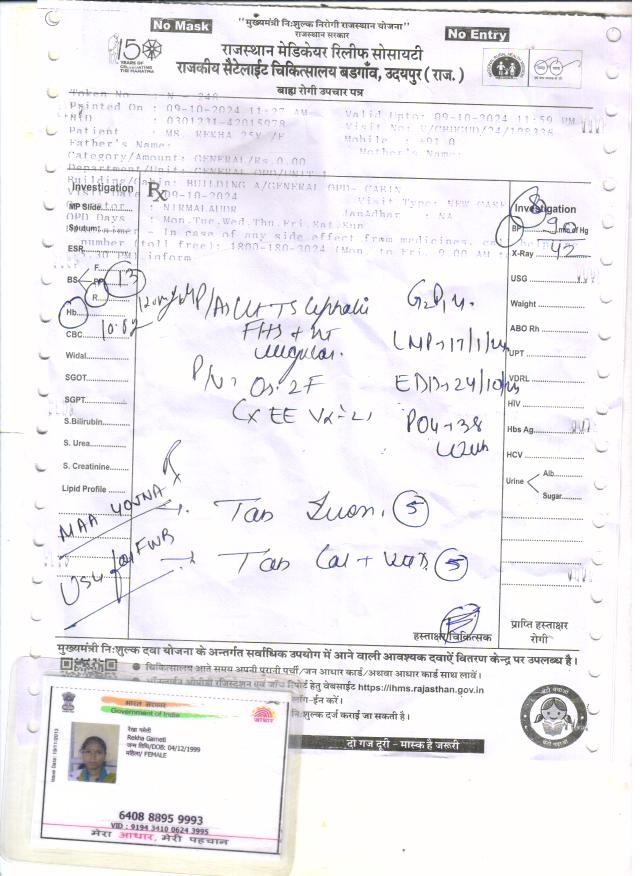 No Mask
"मुख्यमंत्री निःशुल्क निरोगी राजस्थान योजना"
राजस्थान सरकार
No Entry
150
YEARS OF
CELEBRATING
THE MAHATMA
राजस्थान मेडिकेयर रिलीफ सोसायटी
राजकीय सैटेलाईट चिकित्सालय बडगाँव, उदयपुर ( राज. )
बाह्य रोगी उपचार पत्र
Token No : N - 248
Printed On : 09-10-2024 11:27 AM
Valid Upto: 09-10-2024 11:59 PM
0301231-42015978
Patient : MS. REKHA 25Y /F
Mobile : +91 0
Father's Name:
Mother's Name:
Category/Amount: GENERAL/Rs.0.00
Department/Unit: GENERAL OPD/UNIT 1
Building/Cabin: BUILDING A/GENERAL OPD- CABIN
Visit Date : 09-10-2024
Visit Type: NEW CASE
JanAadhar : NA
OPD Days : Mon,Tue,Wed,Thu,Fri,Sat,Sun
- In case of any side effect from medicines, call
number (toll free): 1800-180-3024 (Mon. to Fri. 9.00 AM to
inform
Investigation
Rx
Investigation
MP Slide
BP 90 mm of Hg
Sputum
42
ESR
X-Ray
F
BS PP 13
USG
R
Waight
Hb
10.82
CBC
ABO Rh
120mg
P/A
TS Cephalic
G2P1
FHS +
regular.
LMP→17/1/24
UPT
Widal
P/V→ Os. 2F
EDD→24/10/24
VDRL
SGOT
Cx
HIV
SGPT
POG→38
week
Hbs Ag.
S.Bilirubin
HCV
S. Urea
Urine Alb.
Sugar
S. Creatinine
Lipid Profile
Rx
MAA YOJNA
→ Tab 5
USG for FWB
→ Tab Cal + 5
हस्ताक्षर चिकित्सक
प्राप्ति हस्ताक्षर
रोगी
मुख्यमंत्री निःशुल्क दवा योजना के अन्तर्गत सर्वाधिक उपयोग में आने वाली आवश्यक दवाऐं वितरण केन्द्र पर उपलब्ध है।
● चिकित्सालय आते समय अपनी पुरानी पर्ची/जन आधार कार्ड/अथवा आधार कार्ड साथ लावें।
ओपीडी रजिस्ट्रेशन एवं जाँच रिपोर्ट हेतु वेबसाईट https://ihms.rajasthan.gov.in
लॉग-ईन करें।
निःशुल्क दर्ज कराई जा सकती है।
दो गज दूरी - मास्क है जरूरी
बेटी बचाओ
बेटी पढ़ाओ
भारत सरकार
Government of India
आधार
Issue Date: 10/11/2013
रेखा गमेती
Rekha Gameti
जन्म तिथि/DOB: 04/12/1999
महिला/ FEMALE
6408 8895 9993
VID : 9194 3410 0624 3995
मेरा आधार, मेरी पहचान